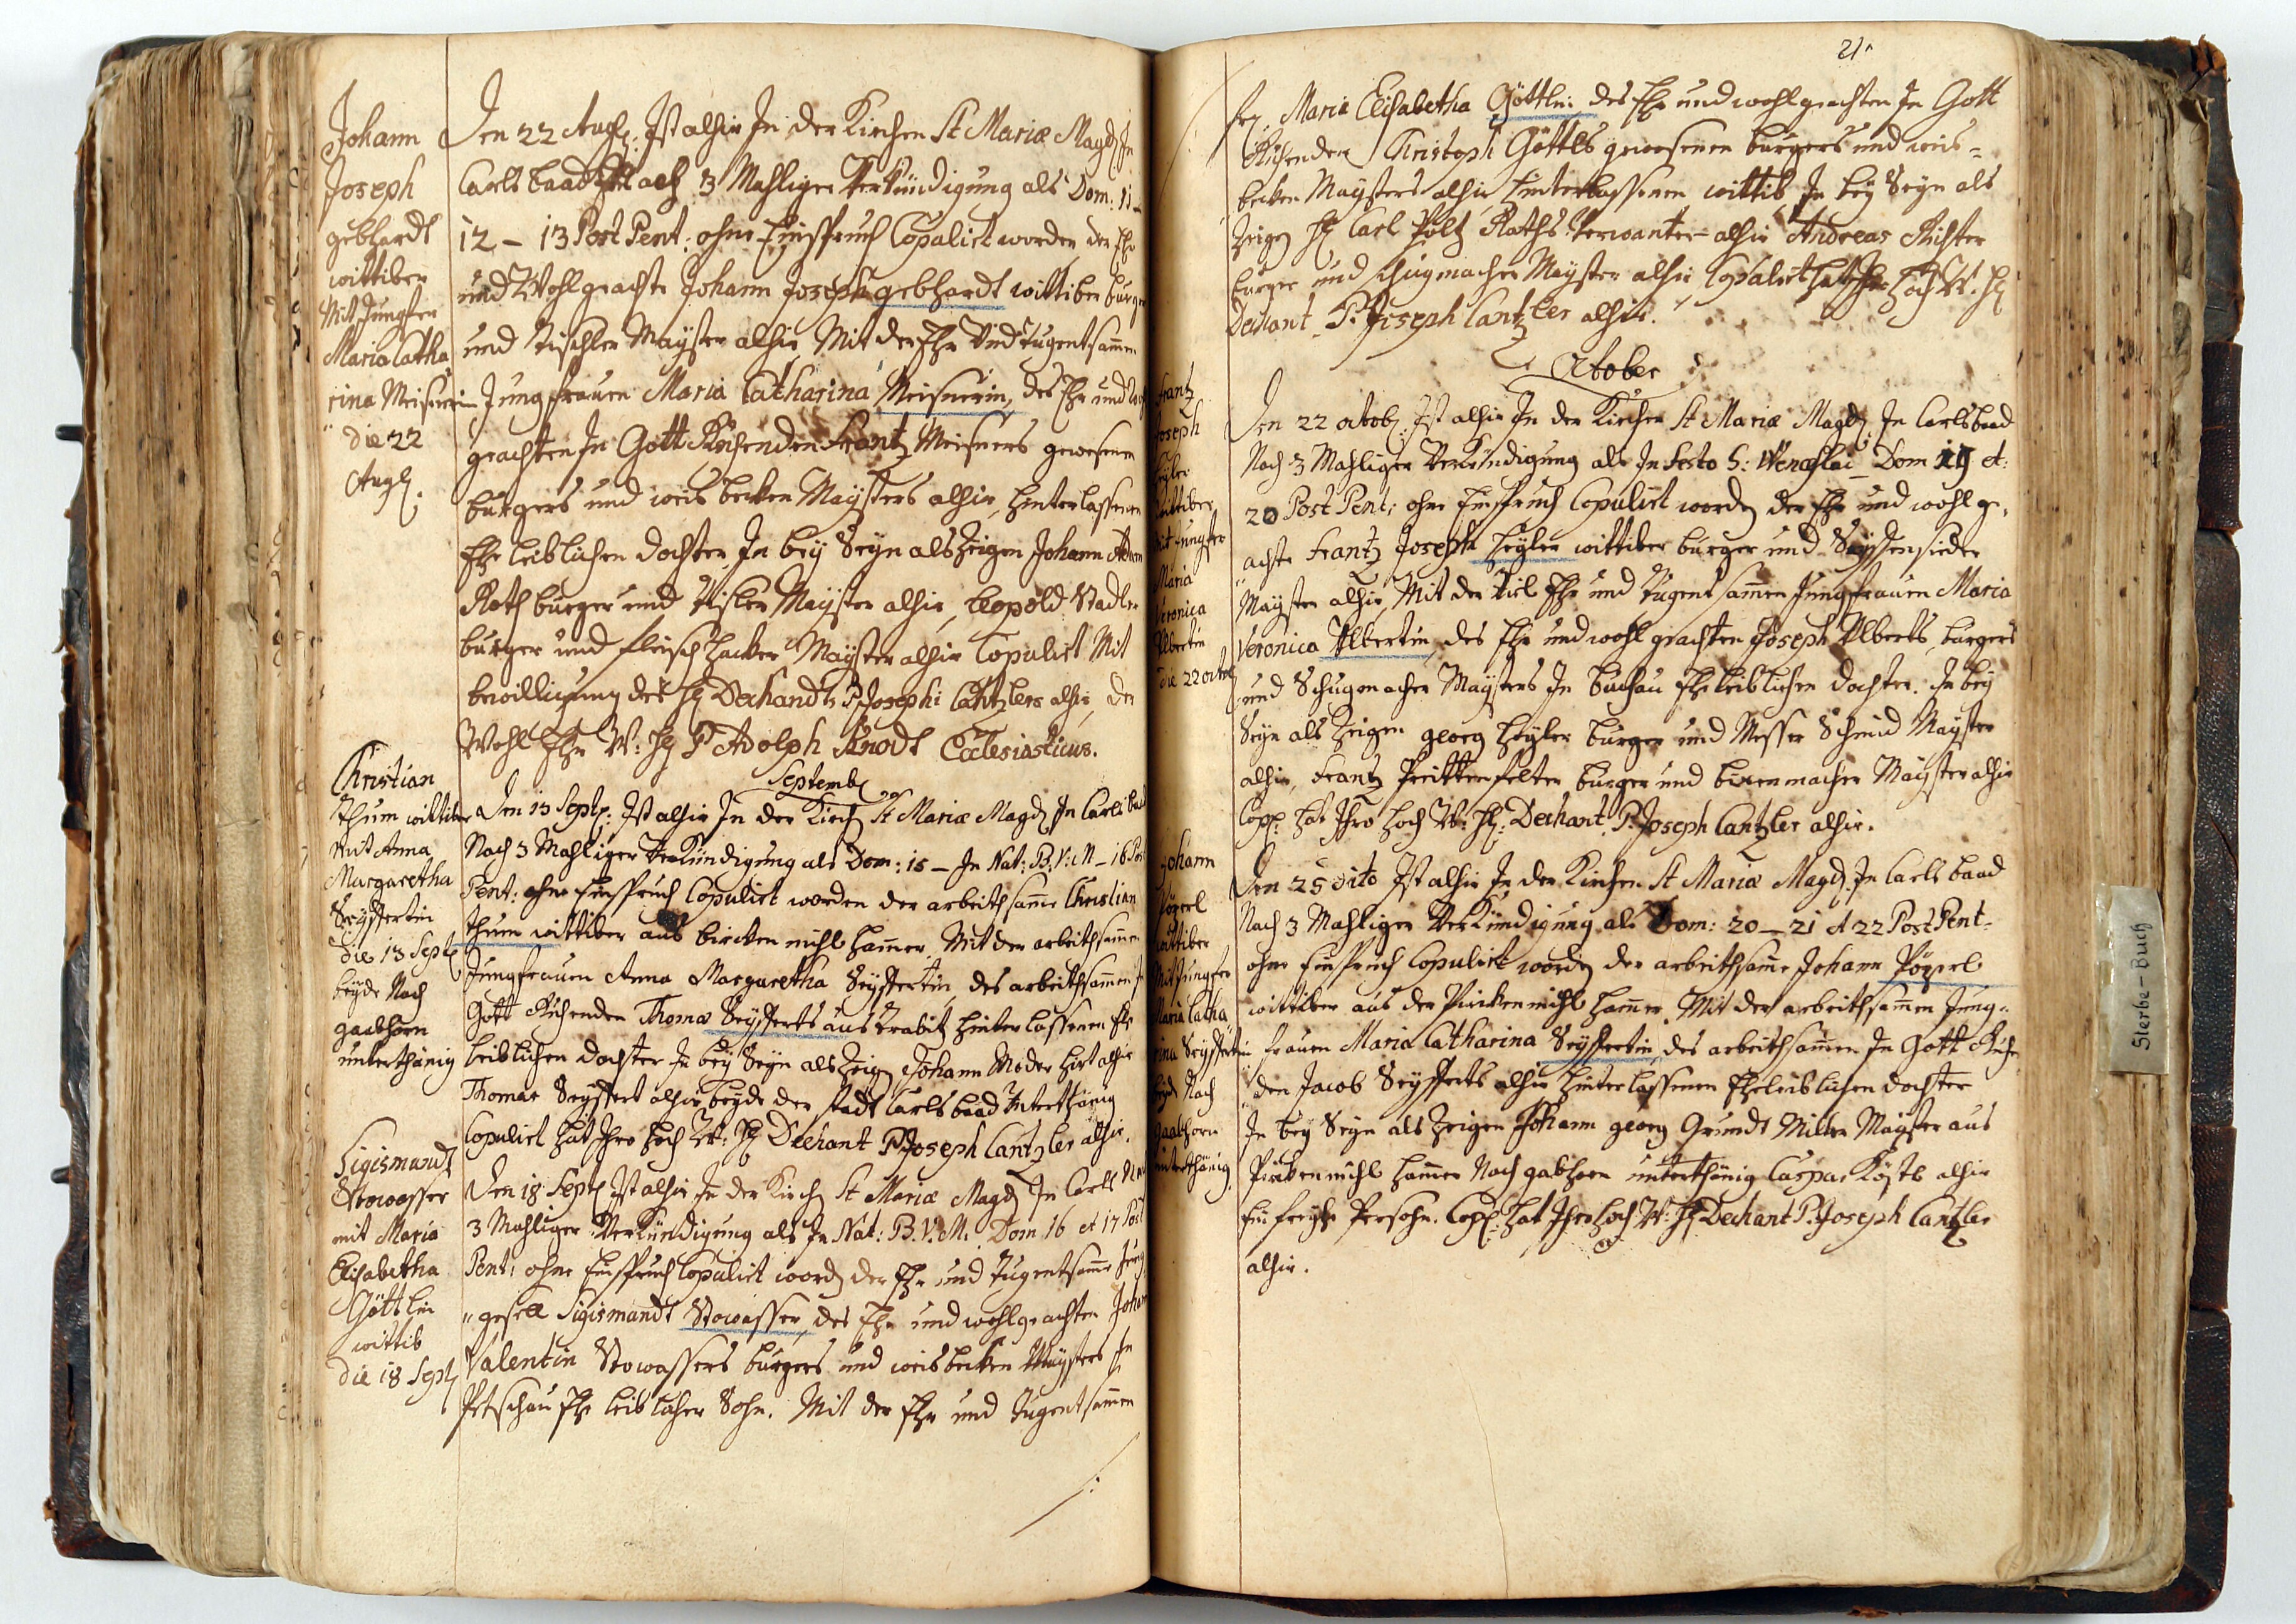 Johann
Joseph
gebhardt
wittiber
Mit Jungfer
Maria Catha
rina Meisnerin
die 22
Aug:
Den 22 Aug: Ist alhir In der Kirchen St Mariæ Magd: In
Carlsbaad Nach 3 Mahliger Verkündigung als Dom: 11 –
12 – 13 Post Pent: ohne Einspruch Copulirt worden der Ehr
und Wohl geachte Johann Joseph gebhardt wittiber burger
und Tischler Mayster alhir, Mit der Ehr Und Tugentsamen
Jungfrauen Maria Catharina Meisnerin, des Ehr und wohl
geachten In Gott Ruhenden Frantz Meisners gewesenen
burgers und weis becken Maysters alhir, hinterlassenen
Ehe leiblichen dochter, In bey Seyn als Zeigen Johann Adam
Roth burger und Tischler Mayster alhir, Leopold Stadler
burger und fleisch hacker Mayster alhir Copulirt Mit
bewilligung des H: Dechandts P. Josephi Cantzlers alhir, der
Wohl Ehr W: H: P. Adolph Knodt Eclesiasticus.
Septemb:
Christian
Thum wittiber
Mit Anna
Margaretha
Seyffertin
die 13 Sept:
beyde Nach
gabhorn
unterthänig
Den 13 Sept: Ist alhir In der Kirch: St Mariæ Magd: In Carlsbaad
Nach 3 Mahliger Verkündigung als Dom: 15 – In Nat: B.V.M – 16 Post
Pent: ohne Einspruch Copulirt worden der arbeithsame Christian
Thum wittiber aus bircken mihl hamer, Mit der arbeithsamen
Jungfrauen Anna Margaretha Seyffertin, des arbeithsamen In
Gott Ruhenden Thomæ Seyfferts aus Grabitz hinter lassenen Ehe
leiblichen dochter In bey Seyn als Zeig: Johann Moder hirt alhir
Thomas Seyffert alhir beyde der Stadt Carlsbaad Unterthänig
Copulirt hat Ihro Hoch W: H: Dechant P. Joseph Cantzler alhir.
Sigismundt
Stowasser
mit Maria
Elisabetha
Göttlin
wittib
die 18 Sept:
Den 18 Sept: Ist alhir In der Kirch: St Mariæ Magd: In Carls
3 Mahliger Verkündigung als In Nat: B.V.M. Dom 16 et 17 Post
Pent: ohne Einspruch Copulirt word: der Ehr und Tugentsame Jung
" gesell Sigismundt Stowasser, des Ehr und wohlgeachten Johann
Valentin Stowassers burgers und weis becken Maysters In
Petschau Ehe leiblicher Sohn. Mit der Ehr und Tugentsamen
21
Maria Elisabetha Göttlin des Ehr und wohlgeachten In Gott
Ruhenden Christoph Göttls gewesenen burgers und weis-
becken Maysters alhir hinterlassenen wittib, In bey Seyn als
Zeigen H: Carl Pöltz Raths Verwanter alhir Andreas Richter
burger und Schugmacher Mayster alhir, Copulirt hat Ihro Hoch W: H:
Dechant P. Joseph Cantzler alhir.
October
Frantz
Joseph
Heyler
wittiber
mit Jungfer
Maria
Veronica
Albertin
die 22 octob
Den 22 octob: Ist alhir In der Kirchen St Mariæ Magd: In Carlsbaad
Nach 3 Mahliger Verkündigung als In festo S: Wenceslai Dom 19 et:
20 Post Pent: ohne Einspruch Copulirt word: der Ehr und wohl ge-
" achte Frantz Joseph Heyler wittiber burger und Seyffensieder
" Mayster alhir, Mit der Viel Ehr und Tugent samen Jungfrauen Maria
Veronica Albertin, des Ehr und wohl geachten Joseph Alberts, burgers
und Schugmacher Maysters In buchau Ehe leiblichen dochter. In bey
Seyn als Zeigen georg Heyler burger und Messer Schmid Mayster
alhir, Frantz burger und bixenmacher Mayster alhir
Cop: hat Ihro Hoch W: H: Dechant P. Joseph Cantzler alhir.
Johann
Pögerl
wittiber
Mit Jungfer
Maria Catha
rina Seyffertin
beyde Nach
gaabhorn
unterthänig
Den 25 dito Ist alhir In der Kirchen St Mariæ Magd: In Carlsbaad
Nach 3 Mahliger Verkündigung als Dom: 20 – 21 et 22 Post Pent-
ohne Einspruch Copulirt word: der arbeithsame Johann Pögerl
wittiber aus der Pircken mihl hamer. Mit der arbeithsamen Jung-
" frauen Maria Catharina Seyffertin, des arbeithsamen In Gott Ruhe
" den Jacob Seyfferts alhir hinter lassenen Eheleiblichen dochter
In bey Seyn als Zeigen Johann georg Grundt Miller Mayster aus
Pircken mihl hamer Nach gabhorn unterthänig Caspar alhir
Ein freye Persohn. Cop: hat Ihro Hoch W: H: Dechant P. Joseph Cantzler
alhir.
Sterbe-Buch